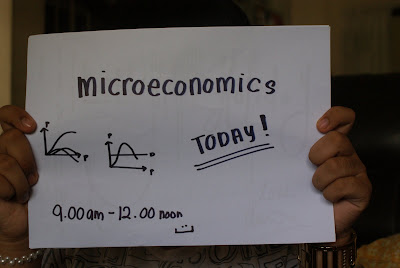 microeconomics
TODAY!
9.00am - 12.00 noon